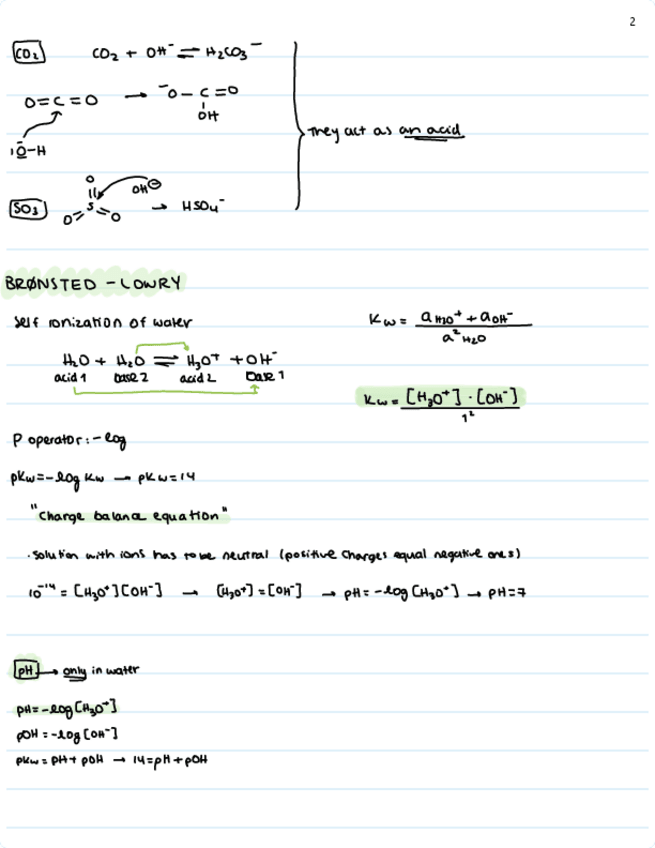 2
CO₂ CO₂ + OH⁻ ⇌ H₂CO₃⁻
O=C=O → ⁻O-C=O
OH
:O-H
They act as an acid
O
OH⊖
SO₃ O=S=O → HSO₄⁻
BRØNSTED-LOWRY
Self ionization of water
Kw = a H₃O⁺ + a OH⁻ / a² H₂O
H₂O + H₂O ⇌ H₃O⁺ + OH⁻
acid 1 base 2 acid 2 base 1
Kw = [H₃O⁺] · [OH⁻] / 1²
P operator: -log
pKw = -log Kw → pKw = 14
"Charge balance equation"
· Solution with ions has to be neutral (positive charges equal negative ones)
10⁻¹⁴ = [H₃O⁺][OH⁻] → [H₃O⁺] = [OH⁻] → pH = -log [H₃O⁺] → pH = 7
pH → only in water
pH = -log [H₃O⁺]
pOH = -log [OH⁻]
pKw = pH + pOH → 14 = pH + pOH